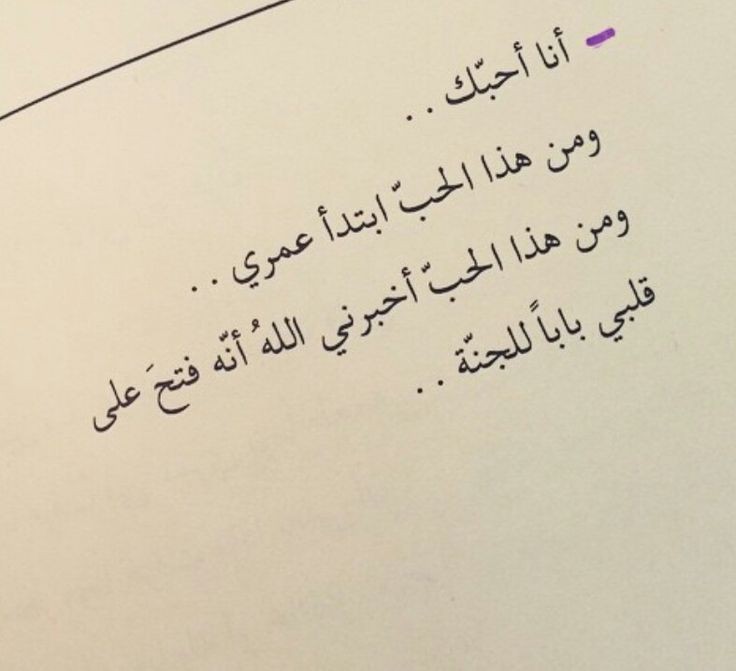 - أنا أحبّك . .
ومن هذا الحبّ ابتدأ عمري . .
ومن هذا الحبّ أخبرني اللهُ أنّه فتحَ على
قلبي باباً للجنّة . .